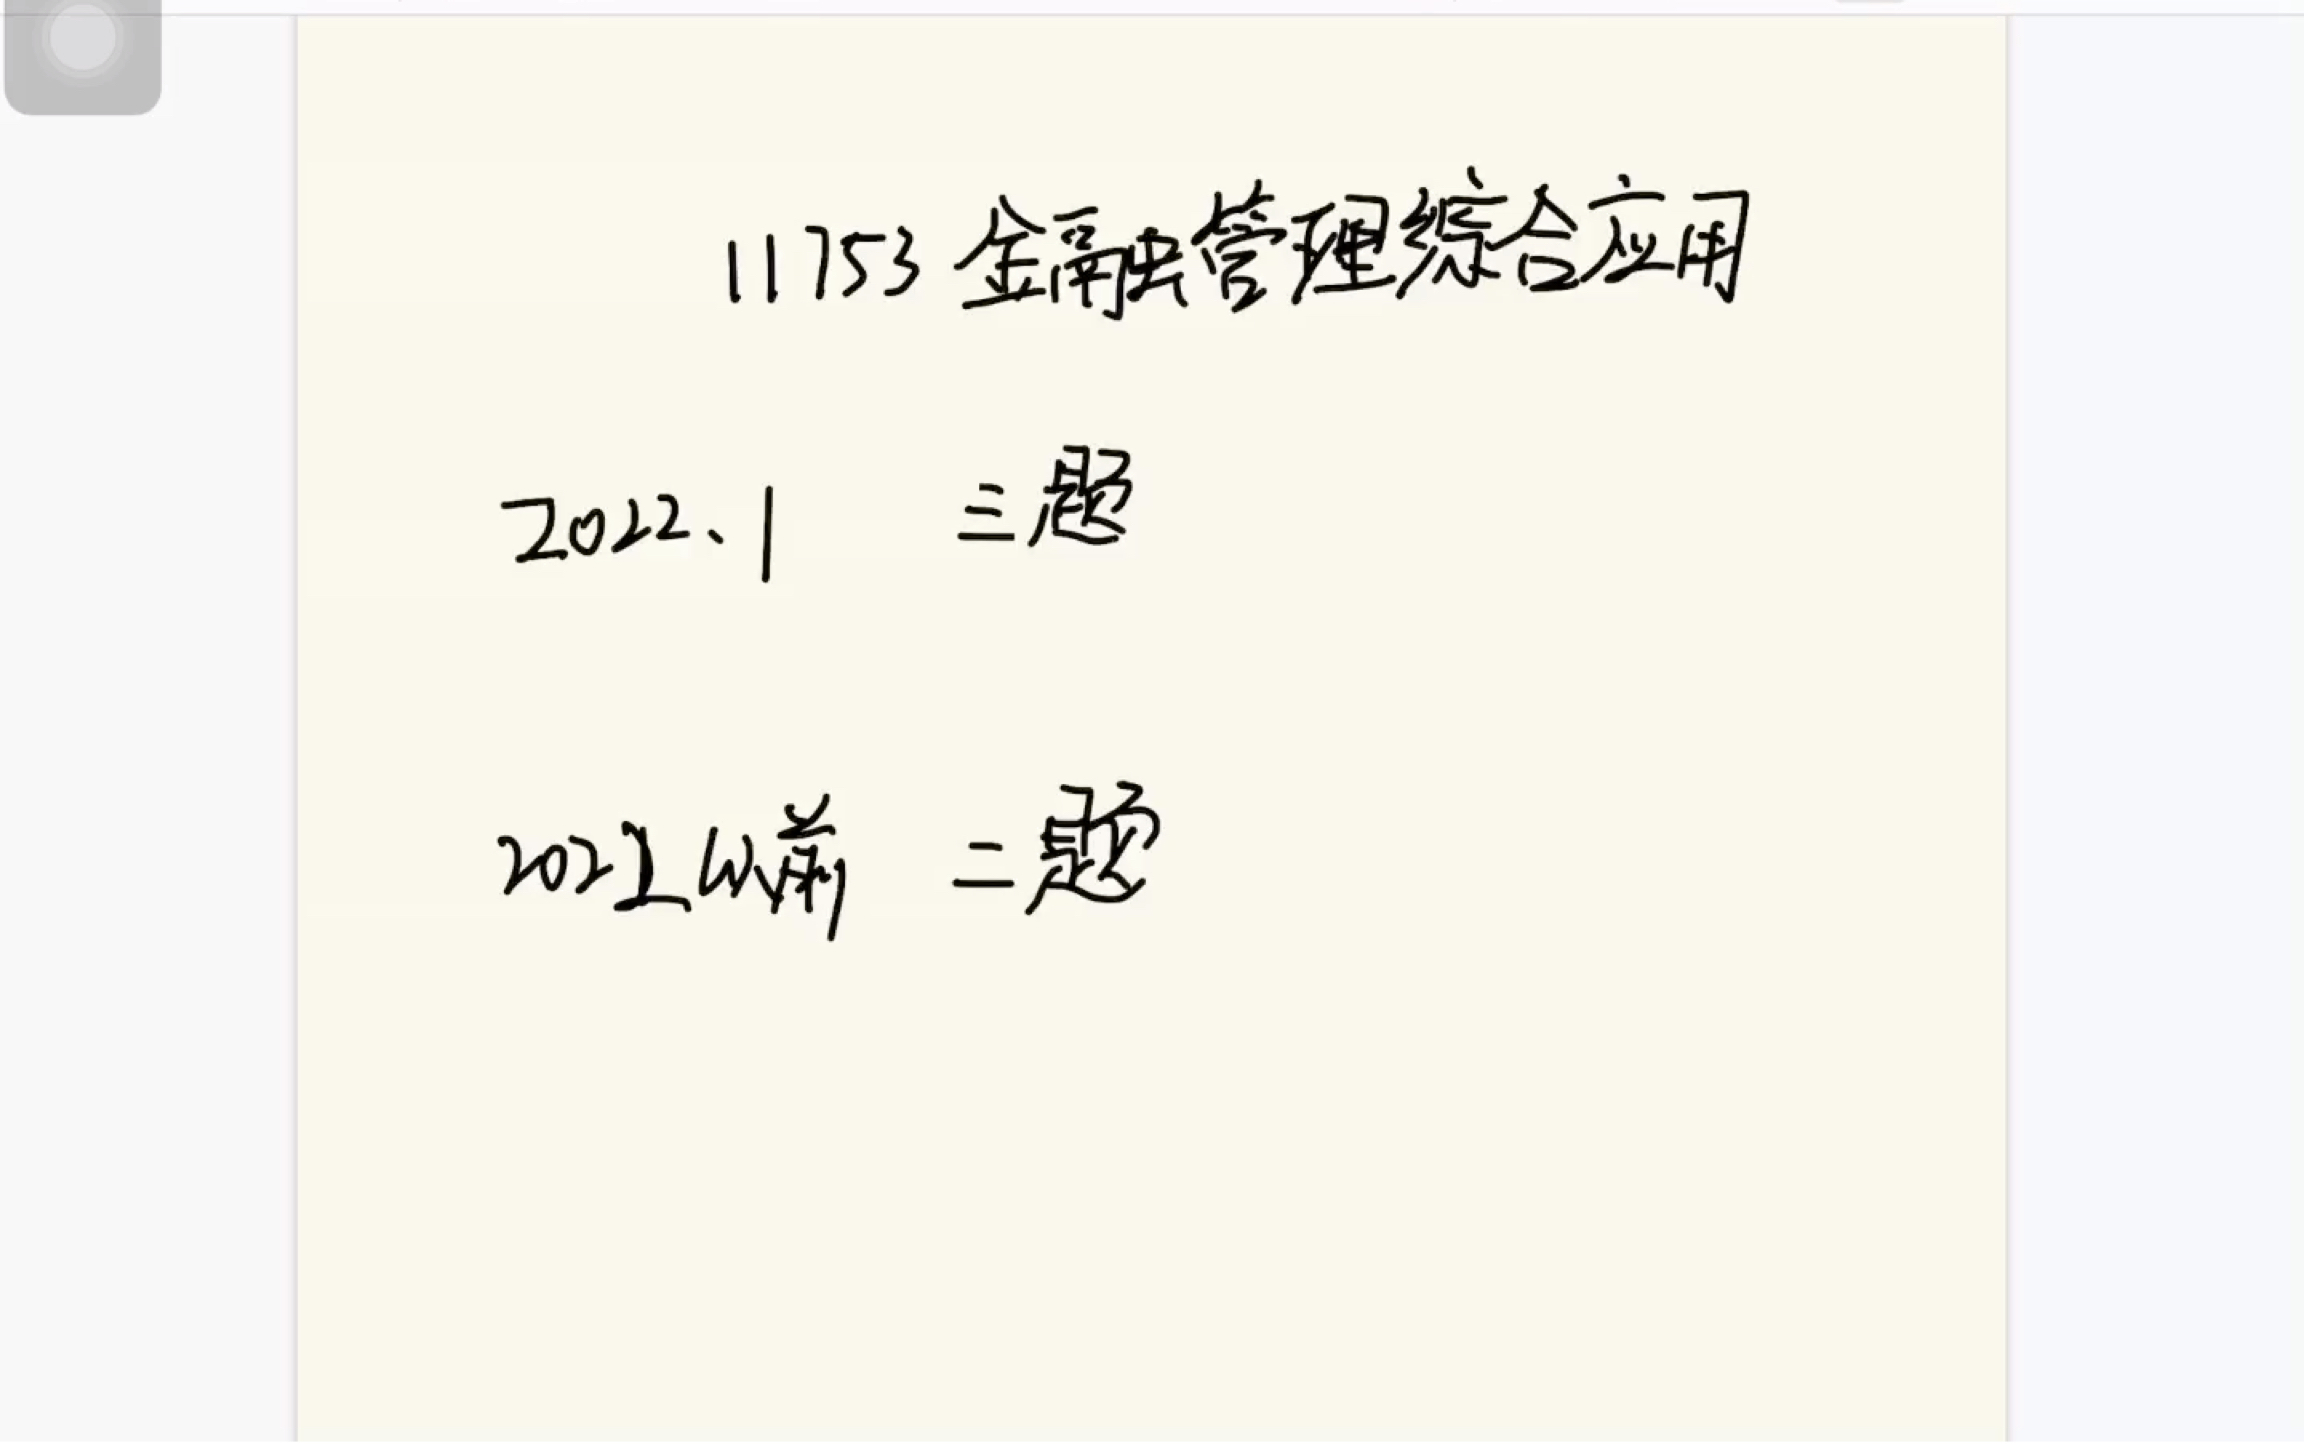 11753 金融管理综合应用
2022、1 三题
2021以前 二题